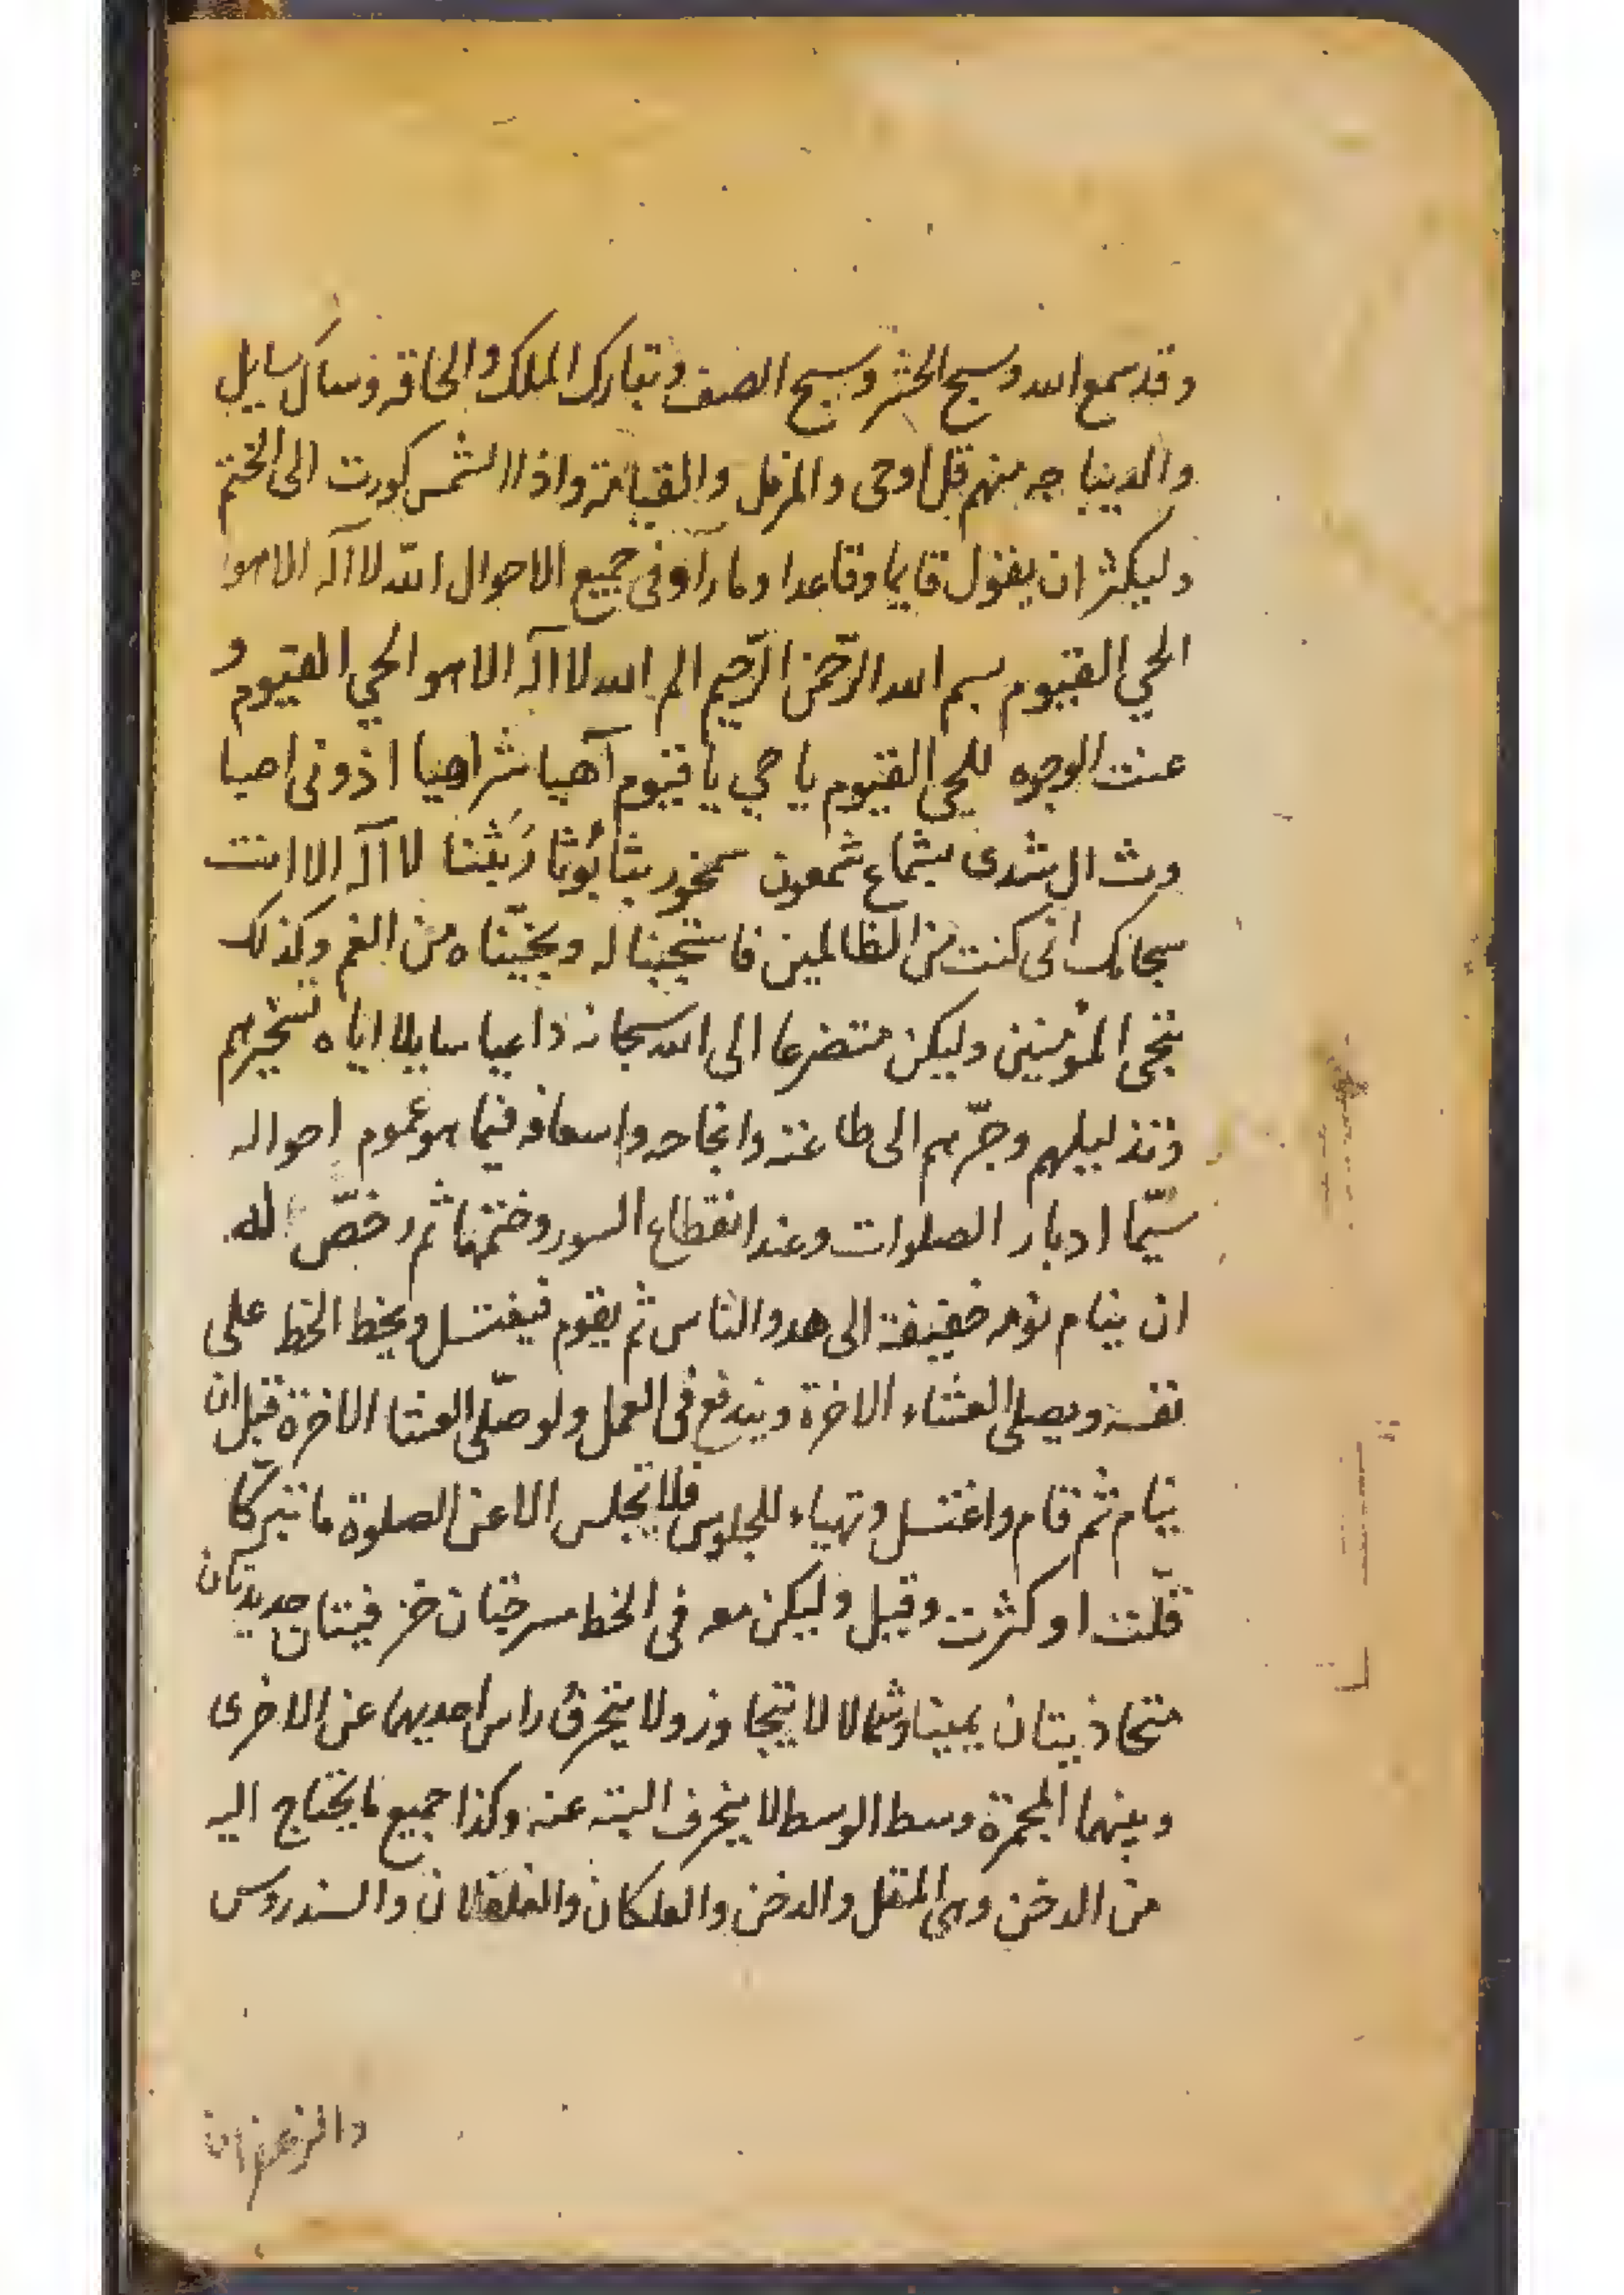 وقد سمع الله وسبح الحشر وسبح الصف وتبارك الملك والحاقه وسال سايل
والديباجه منهم قل اوحى والمزمل والقيامة واذا الشمس كورت الى الختم
وليكثر ان يقول قايما وقاعدا ومارا وفى جميع الاحوال اللّه لا اله الا هو
الحي القيوم بسم الله الرّحمن الرّحيم الم الله لا اله الا هو الحي القيوم و
عنت الوجوه للحي القيوم يا حي يا قيوم آهيا شراهيا اذونى اصبا
وث ال شدى شماع شمعون لا اله الا انت
سبحانك انى كنت من الظالمين فاستجبنا له ونجّيناه من الغم وكذلك
ننجى المؤمنين وليكن متضرعا الى الله سبحانه داعيا سايلا اياه تسخيرهم
وتذليلهم وجرّهم الى طاعته وانجاحه واسعافه فيما هو عموم احواله
سيّما ادبار الصلوات وعند انقطاع السور وختمها ثم رخصّ له
ان ينام نومه خفيفة الى هدو الناس ثم يقوم فيغتسل ويخط الخط على
نفسه ويصلى العشاء الاخرة ويندفع فى العمل ولو صلّى العشا الاخرة قبل ان
ينام ثم قام واغتسل وتهياء للجلوس فلا يجلس الا عن الصلوة ما تبرّكا
قلّت او كثرت وقيل وليكن معه فى الخط مسرجتان خزفيتان جديدتان
متحاذيتان يمينا وشمالا لا يتجاوز ولا ينحرف راس احديهما عن الاخرى
وبينهما المجمرة وسط الوسط لا ينحرف البته عنه وكذا جميع ما يحتاج اليه
من الدخن وهى المقل والدخن والعلكان والفلفلان والسندروس
والزعفران